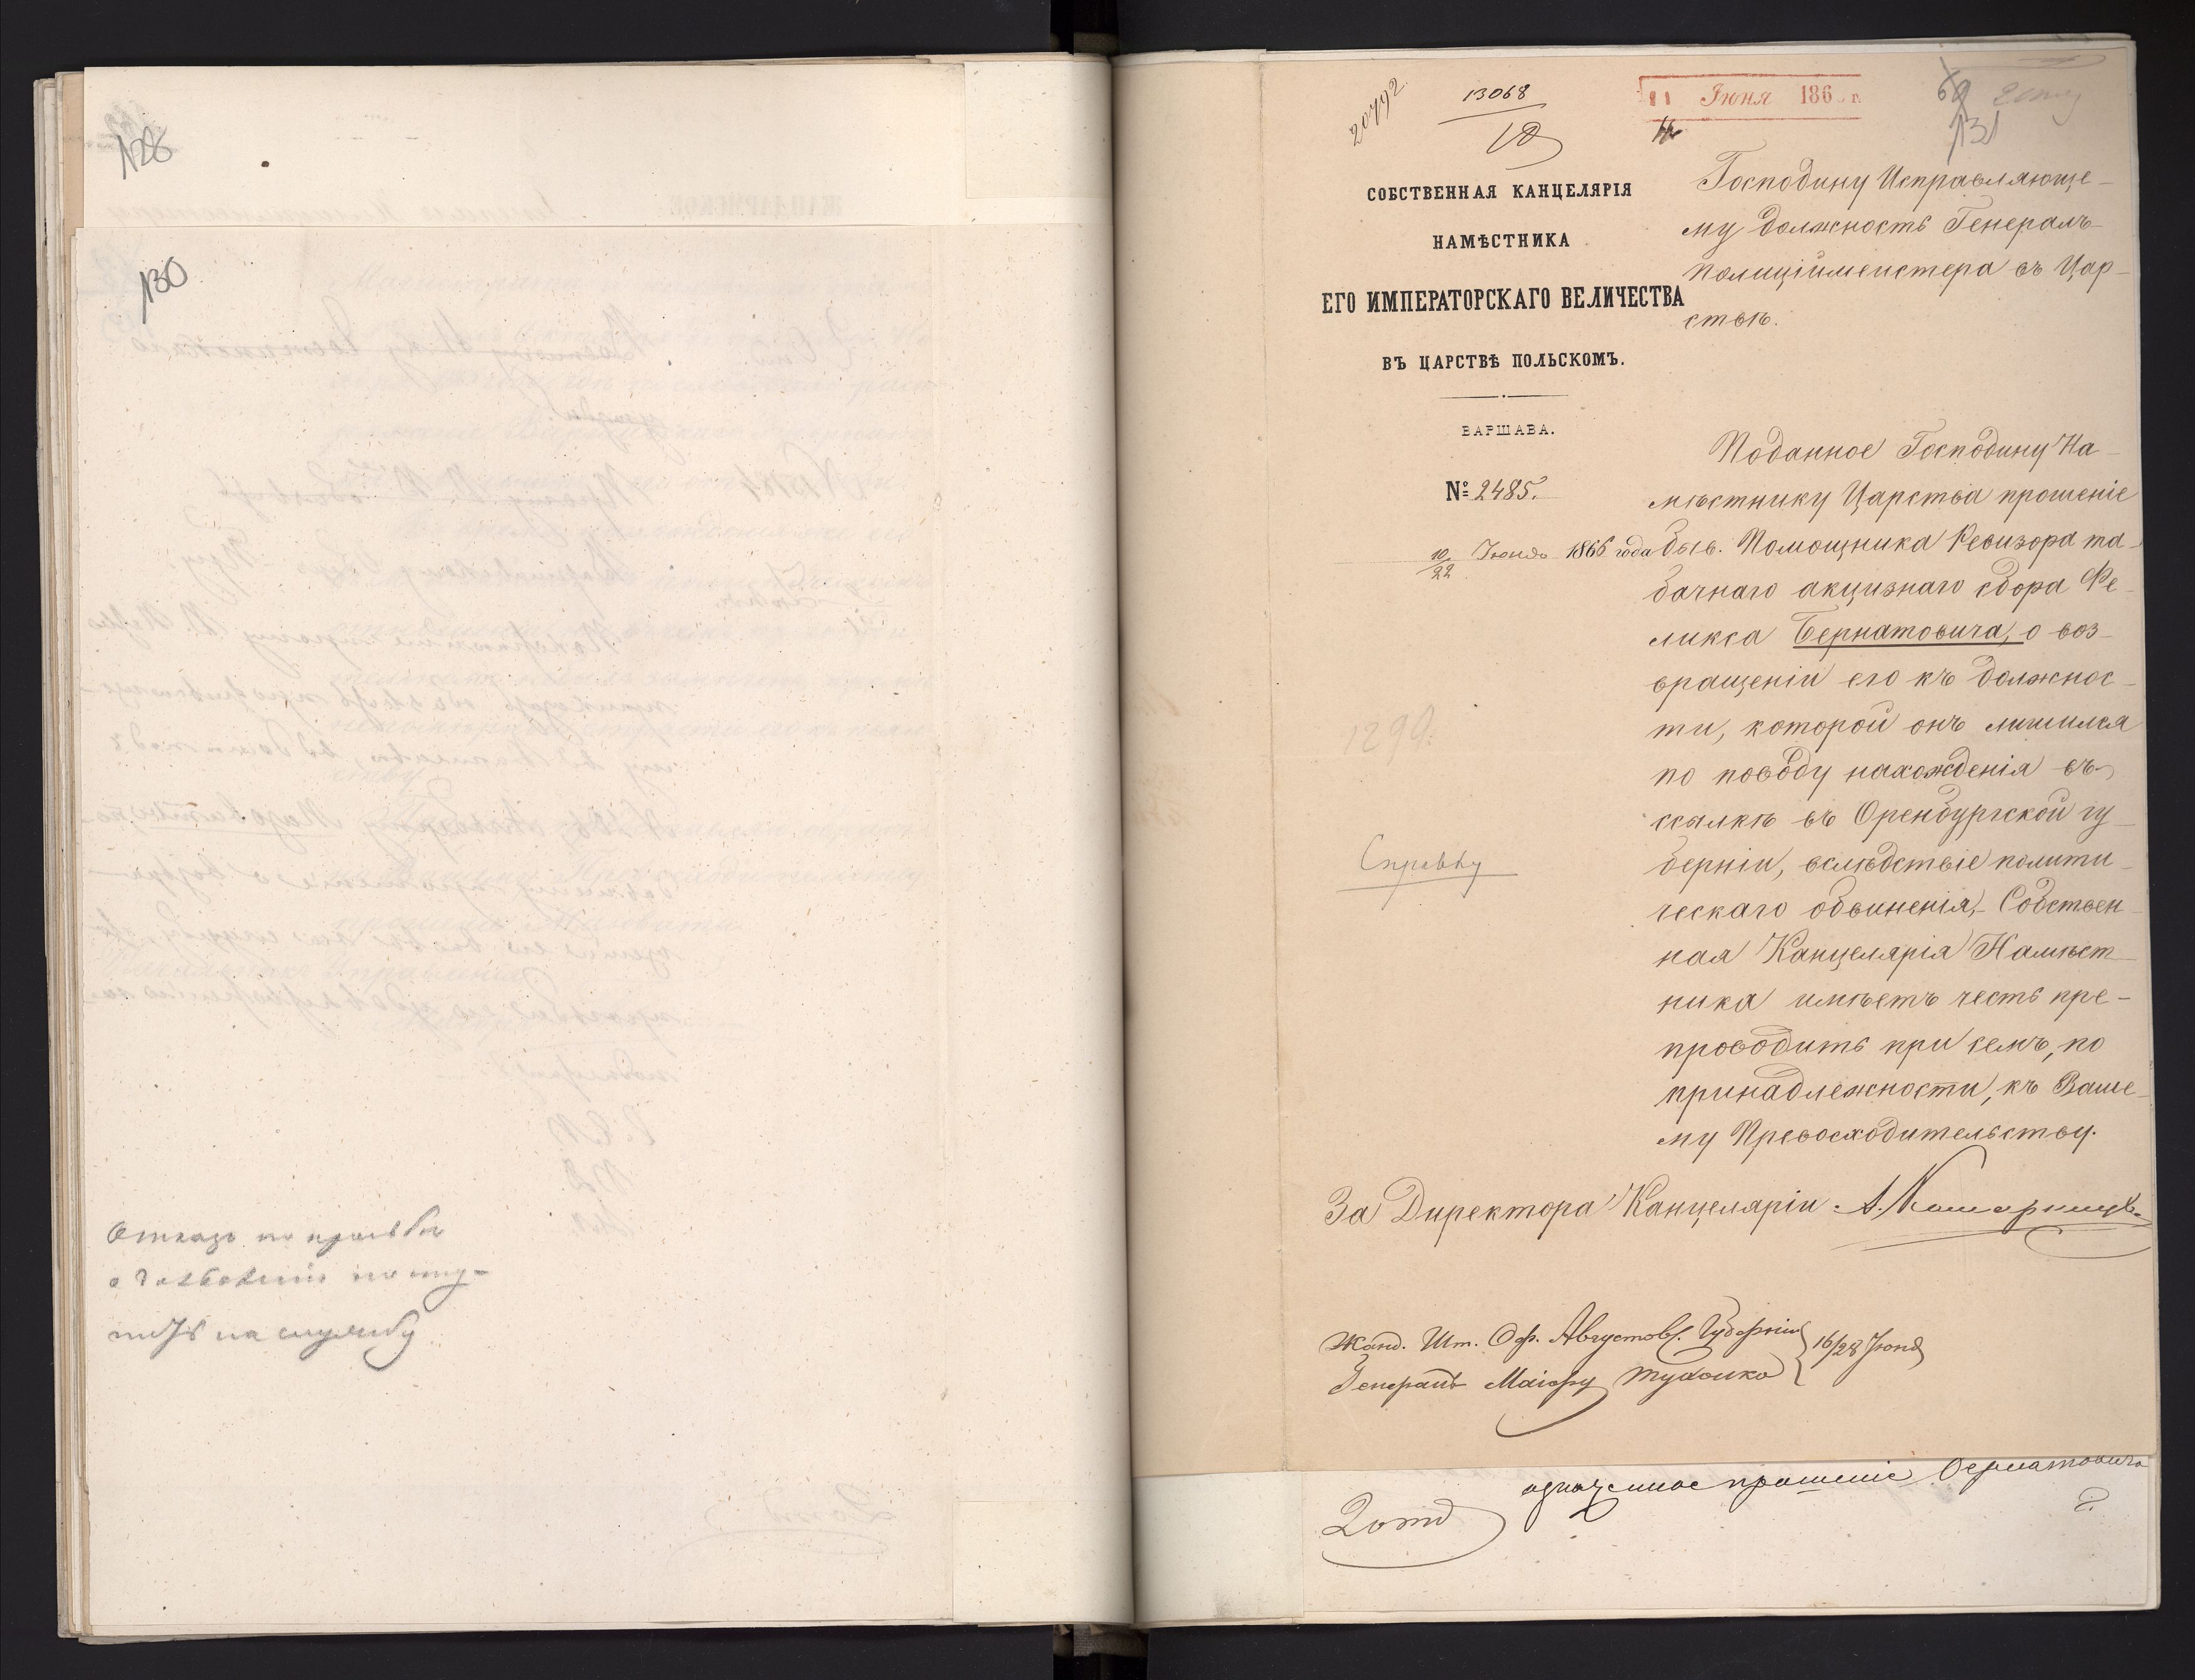 128
130
Отказъ по просьбѣ
о дозволеніи посту-
пить на службу
20792
13068
18
11 Июня 186 г.
131
СОБСТВЕННАЯ КАНЦЕЛЯРІЯ
НАМѢСТНИКА
ЕГО ИМПЕРАТОРСКАГО ВЕЛИЧЕСТВА
ВЪ ЦАРСТВѢ ПОЛЬСКОМЪ.
ВАРШАВА.
№ 2485.
10/22 Июня 1866 года
1299.
Справку
Господину Исправляюще-
му должность Генералъ-
Полиціймейстера въ Цар-
ствѣ.
Поданное Господину На-
мѣстнику Царства прошеніе
быв. Помощника Ревизора та-
бачнаго акцизнаго сбора Фе-
ликса Бернатовича, о воз-
вращеніи его къ должнос-
ти, которой онъ лишился
по поводу нахожденія въ
ссылкѣ въ Оренбургской гу-
берніи, вслѣдствіе полити-
ческаго обвиненія,- Собствен-
ная Канцелярія Намѣст-
ника имѣетъ честь пре-
проводить при семъ, по
принадлежности, къ Ваше-
му Превосходительству.
За Директора Канцеляріи
Жанд. Шт. Оф. Августов. Губерніи
Генералъ Маіору Тухолко 16/28 Июня
прошеніе Бернатовича